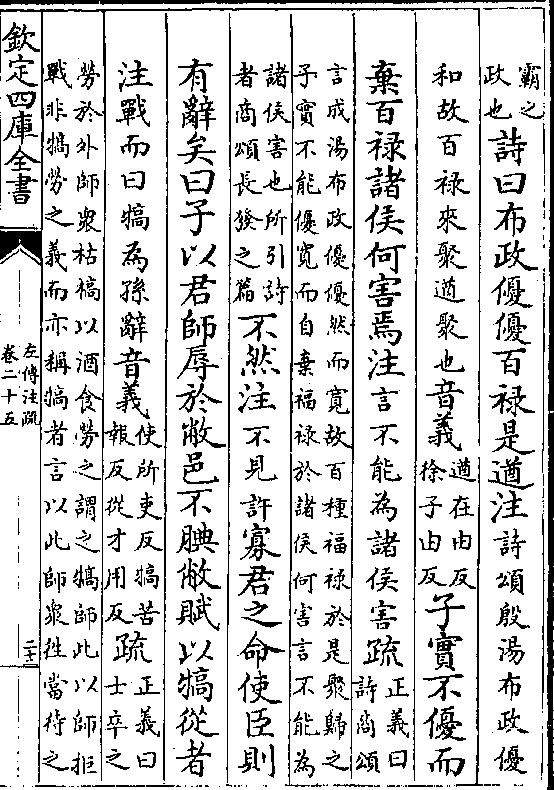 霸之
政也
詩曰布政優優百禄是遒注詩頌殷湯布政優
和故百禄來聚遒聚也音義
遒在由反
徐子由反
子實不優而
棄百禄諸侯何害焉注言不能為諸侯害疏
正義曰
詩商頌
言成湯布政優優然而寛故百種福禄於是聚歸之
子實不能優寛而自棄福禄於諸侯何害言不能為
諸侯害也所引詩
者商頌長發之篇
不然注不見許寡君之命使臣則
有辭矣曰子以君師辱於敝邑不腆敝賦以犒從者
注戰而曰犒為孫辭音義
使所吏反犒苦
報反從才用反
疏
正義曰
士卒之
勞於外師衆枯槁以酒食勞之謂之犒師此以師拒
戰非犒勞之義而亦稱犒者言以此師衆往當待之
欽定四庫全書
左傳注疏
卷二十五